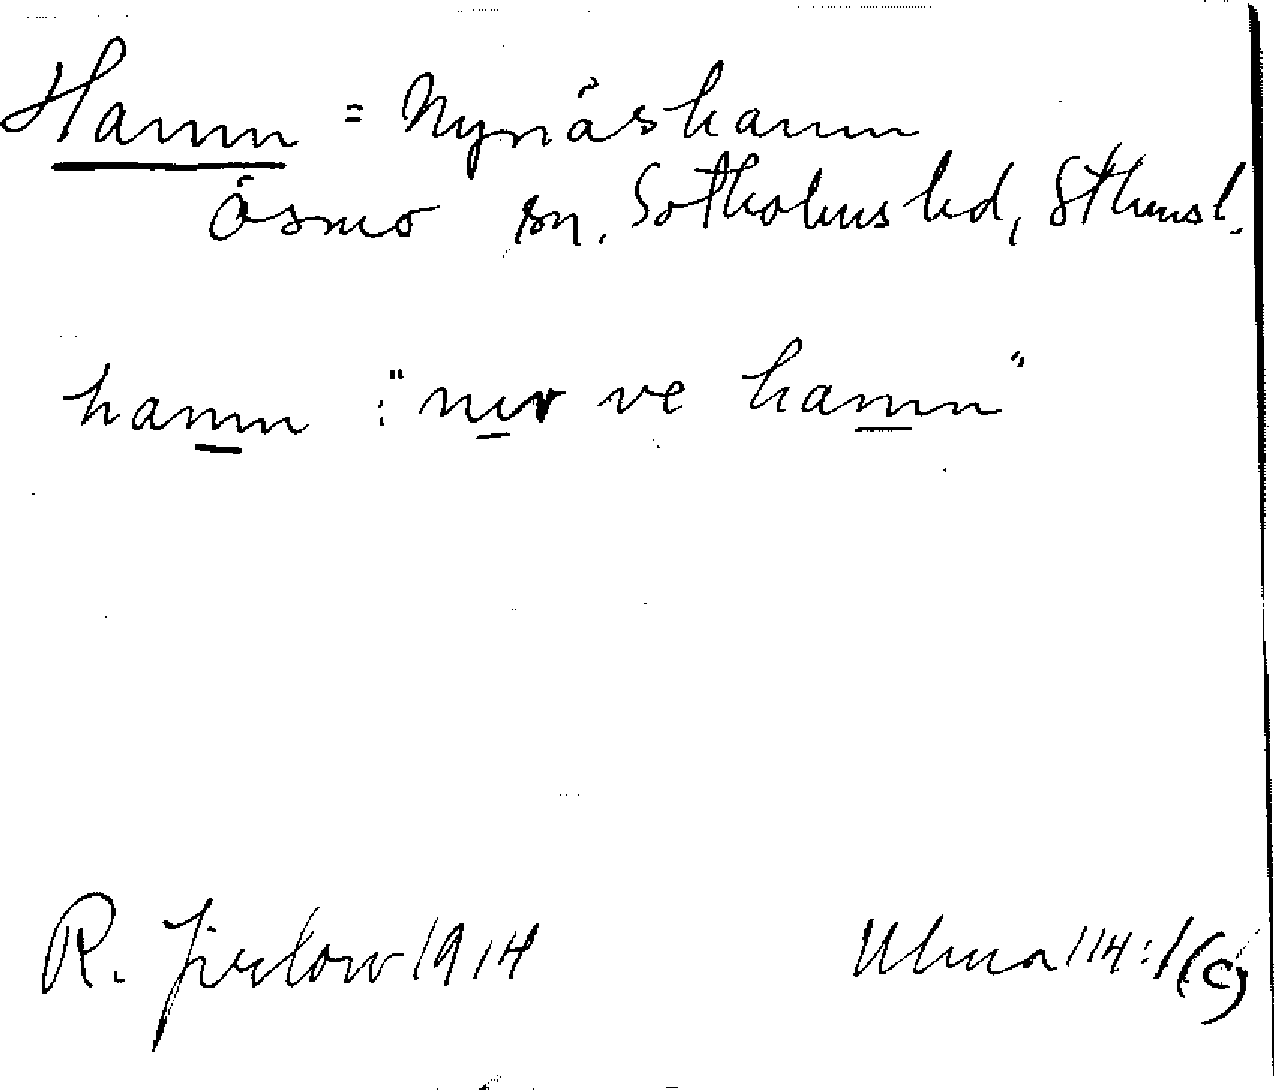 Hamn = Nynäshamn
Ösmo sn. Sotholms hd, Sthmsl.
hamn : "ner ve hamn"
R. Jirlow 1914
Ulma 114:1(c)